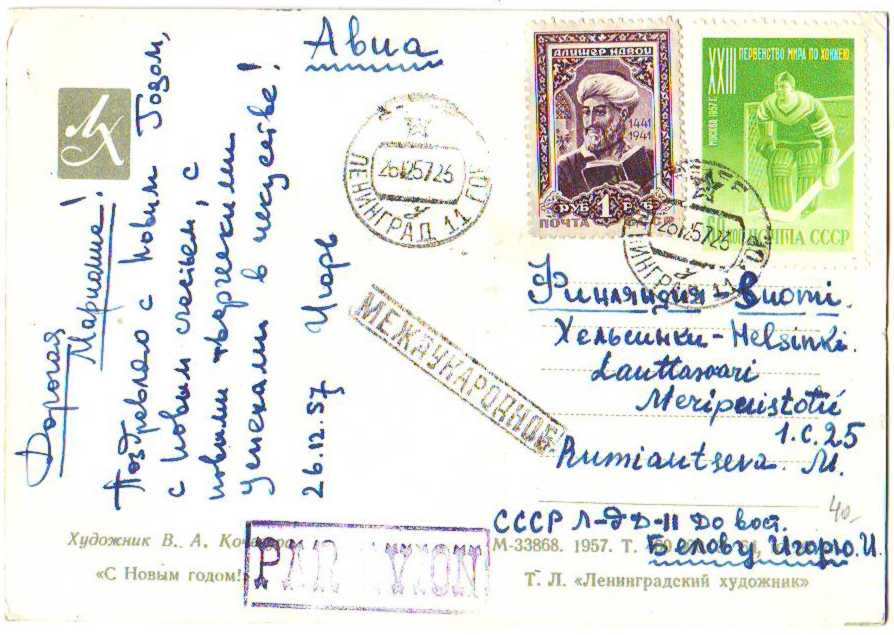 Авиа
Дорогая
Марианна!
Поздравляю с Новым Годом,
с новым счастьем, с
новыми творческими
успехами в искусстве!
26.12.57 Игорь
АЛИШЕР НАВОИ
1441
1941
РУБ 1 РУБ
ПОЧТА
XXIII
ПЕРВЕНСТВО МИРА ПО ХОККЕЮ
МОСКВА 1957 г.
ПОЧТА СССР
ЛЕНИНГРАД 11
ЛЕНИНГРАД 11
МЕЖДУНАРОДНОЕ
Финляндия-Suomi.
Хельсинки-Helsinki.
Lauttasaari
Meripuistotie
1.c.25
Rumiantseva. M.
40-
СССР Л-д Д-11 До вост.
Белову Игорю.И.
PAR AVION
Художник В. А.
«С Новым годом!»
М-33868. 1957. Т.
Т. Л. «Ленинградский художник»